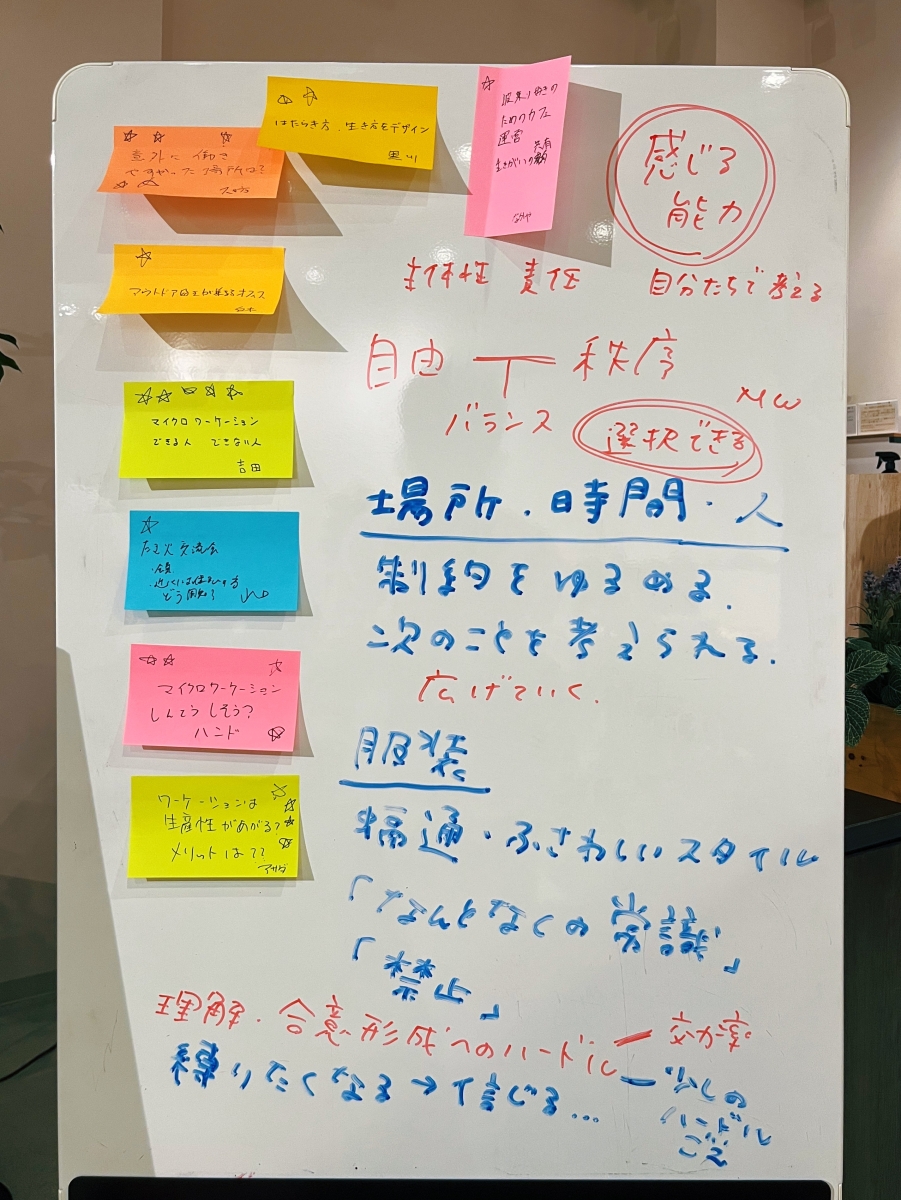 はたらき方、生き方をデザイン
黒川
意外に働き
やすかった場所は?
ためのカフェ
運営
共有
なかや
感じる
能力
主体性 責任
自分たちで考える
自由 秩序
バランス
選択できる
MW
マイクロワーケーション
できる人 できない人
吉田
場所、時間・人
制約をゆるめる。
次のことを考えられる。
広げていく。
たき火交流会
どう
マイクロワーケーション
しんてん しそう?
ハンド
服装
融通・ふさわしいスタイル
ワーケーションは
生産性があがる?
メリットは??
アサダ
「なんとなくの常識」
「禁止」
理解、合意形成へのハードル ー 効率
縛りたくなる→信じる... ー 少しの
ハードル
ごえ